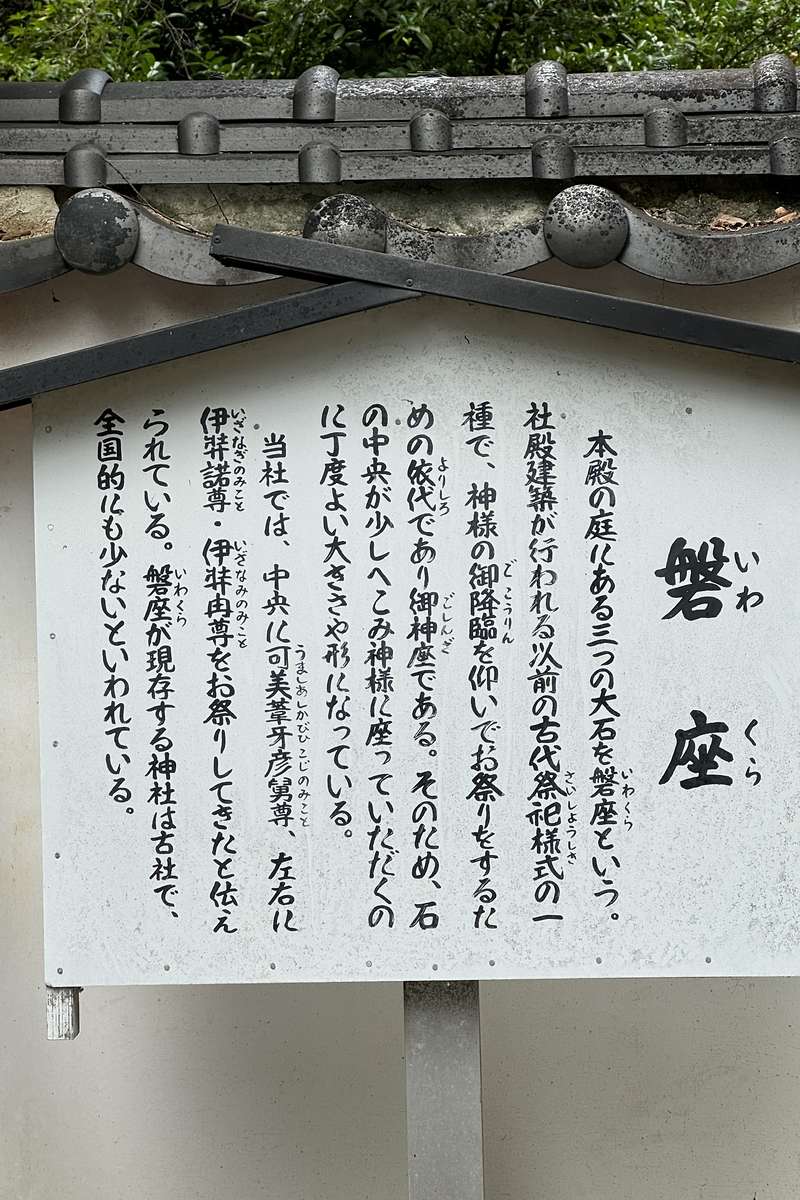 磐座
いわくら
本殿の庭にある三つの大石を磐座という。
いわくら
社殿建築が行われる以前の古代祭祀様式の一
さいしようしき
種で、神様の御降臨を仰いでお祭りをするた
ごこうりん
めの依代であり御神座である。そのため、石
よりしろ ごしんざ
の中央が少しへこみ神様に座っていただくの
に丁度よい大きさや形になっている。
当社では、中央に可美葦牙彦舅尊、左右に
うましあしかびひこじのみこと
伊弉諾尊・伊弉冉尊をお祭りしてきたと伝え
いざなぎのみこと いざなみのみこと
られている。磐座が現存する神社は古社で、
いわくら
全国的にも少ないといわれている。